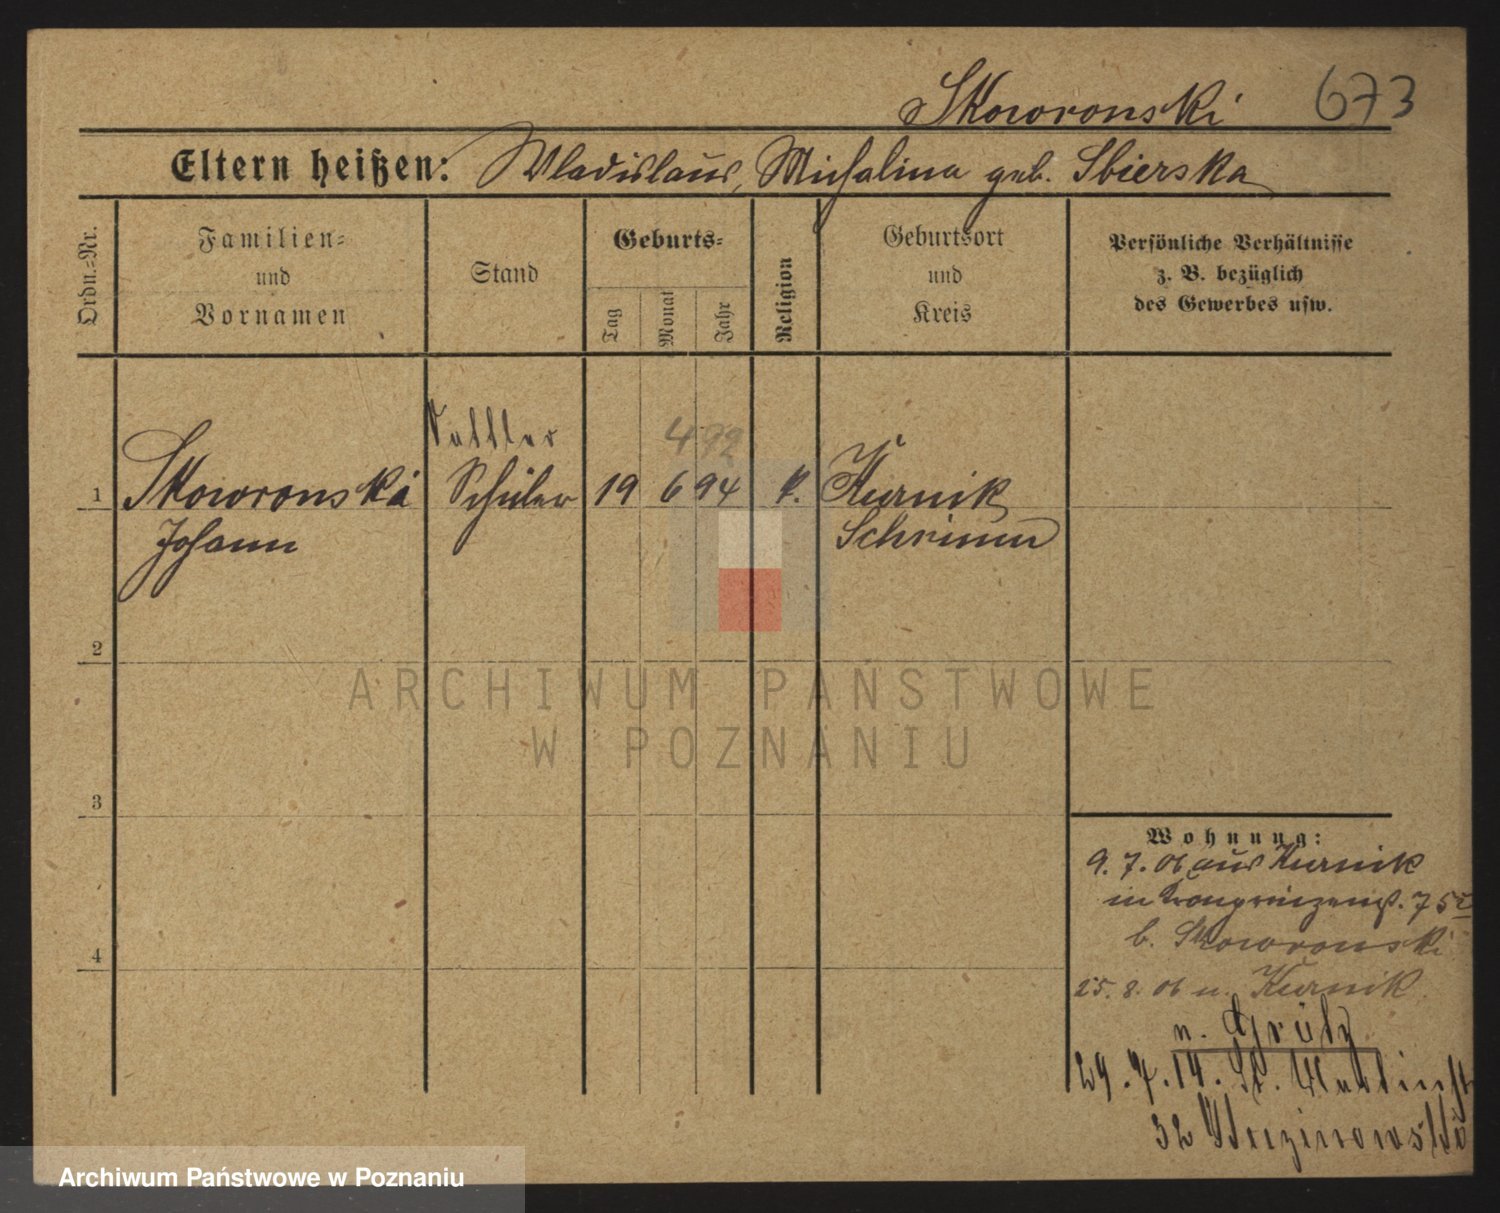 Skowronski 673
Eltern heißen: Wladislaus, Michalina geb. Sbierska
Ordn.-Nr.
Familien-
und
Vornamen
Stand
Geburts-
Tag
Monat
Jahr
Religion
Geburtsort
und
Kreis
Persönliche Verhältnisse
z. B. bezüglich
des Gewerbes usw.
4 92
1 Skowronski Schüler 19 6 94 k. Kurnik
Johann Schrimm
2
3
4
Wohnung:
9. 7. 06 aus Kurnik
in Kronprinzenst. 75
b. Skowronski
25. 8. 06 n. Kurnik
n. Grätz
29. 7. 14. St. Martinst
32
ARCHIWUM PAŃSTWOWE
W POZNANIU
Archiwum Państwowe w Poznaniu